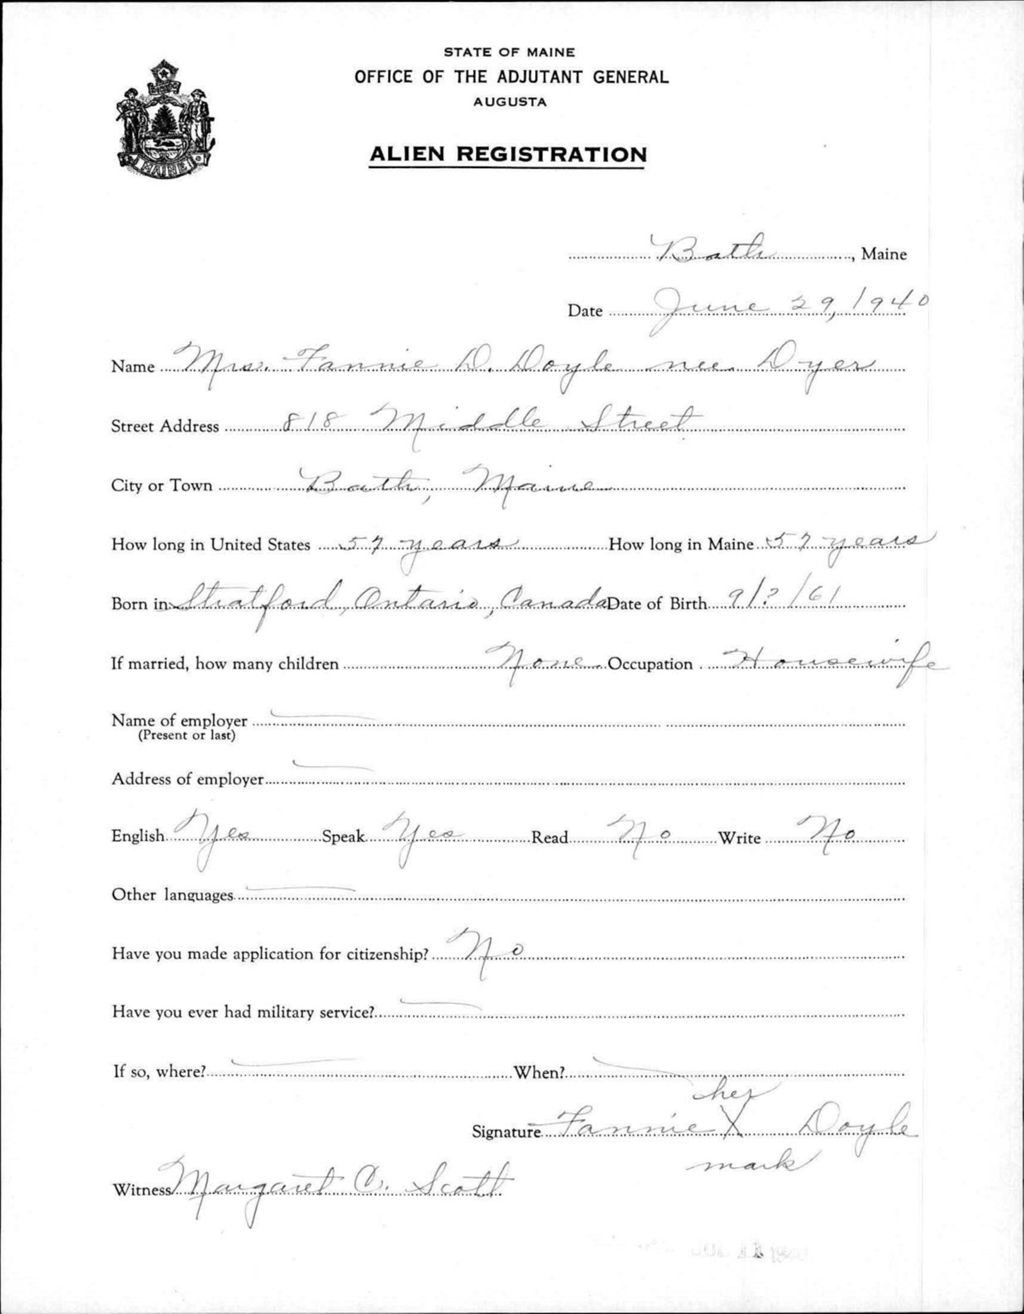 STATE OF MAINE
OFFICE OF THE ADJUTANT GENERAL
AUGUSTA
ALIEN REGISTRATION
MAINE
Bath, Maine
Date June 29, 1940
Name Mrs. Fannie D. Doyle nee Dyer
Street Address 818 Middle Street
City or Town Bath, Maine
How long in United States 57 years How long in Maine 57 years
Born in Stratford, Ontario, Canada Date of Birth 9/?/61
If married, how many children None Occupation Housewife
Name of employer
(Present or last)
Address of employer
English Yes Speak Yes Read No Write No
Other languages
Have you made application for citizenship? No
Have you ever had military service?
If so, where? When?
her
Signature Fannie X Doyle
mark
Witness Margaret C. Scott